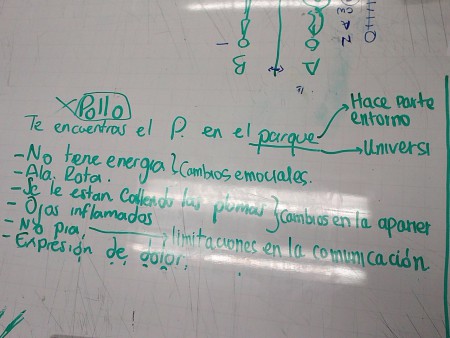 Pollo
Te encuentras el P. en el parque
Hace parte
entorno
Universi
- No tiene energia } Cambios emociales.
- Ala. Rota.
- Se le estan callendo las plumas } Cambios en la aparier
- Ojos inflamados
- No pia. limitaciones en la comunicación
- Expresión de dolor.
A
B